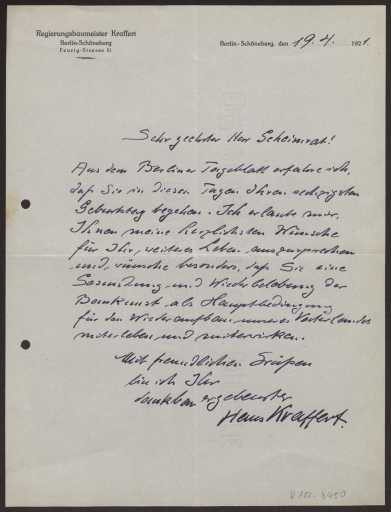 Regierungsbaumeister Kraffert
Berlin-Schöneberg
Feurig-Strasse 51
Berlin-Schöneberg, den 19.4. 1921.
Sehr geehrter Herr Geheimrat!
Aus dem Berliner Tageblatt erfahre ich,
daß Sie in diesen Tagen Ihren sechzigsten
Geburtstag begehen. Ich erlaube mir,
Ihnen meine herzlichsten Wünsche
für Ihr weiteres Leben auszusprechen
und wünsche besonders, daß Sie eine
Gesundung und Wiederbelebung der
Baukunst als Hauptbedingung
für den Wiederaufbau unseres Vaterlandes
miterleben und mitwirken.
Mit freundlichen Grüßen
bin ich Ihr
dankbar ergebenster
Hans Kraffert.